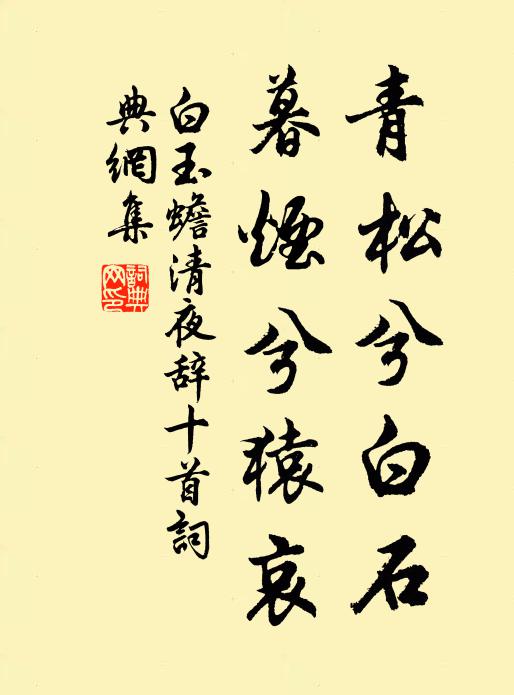 青松兮白石
暮煙兮猿哀
白玉蟾清夜辞十首詞
典網集
詞典
网印